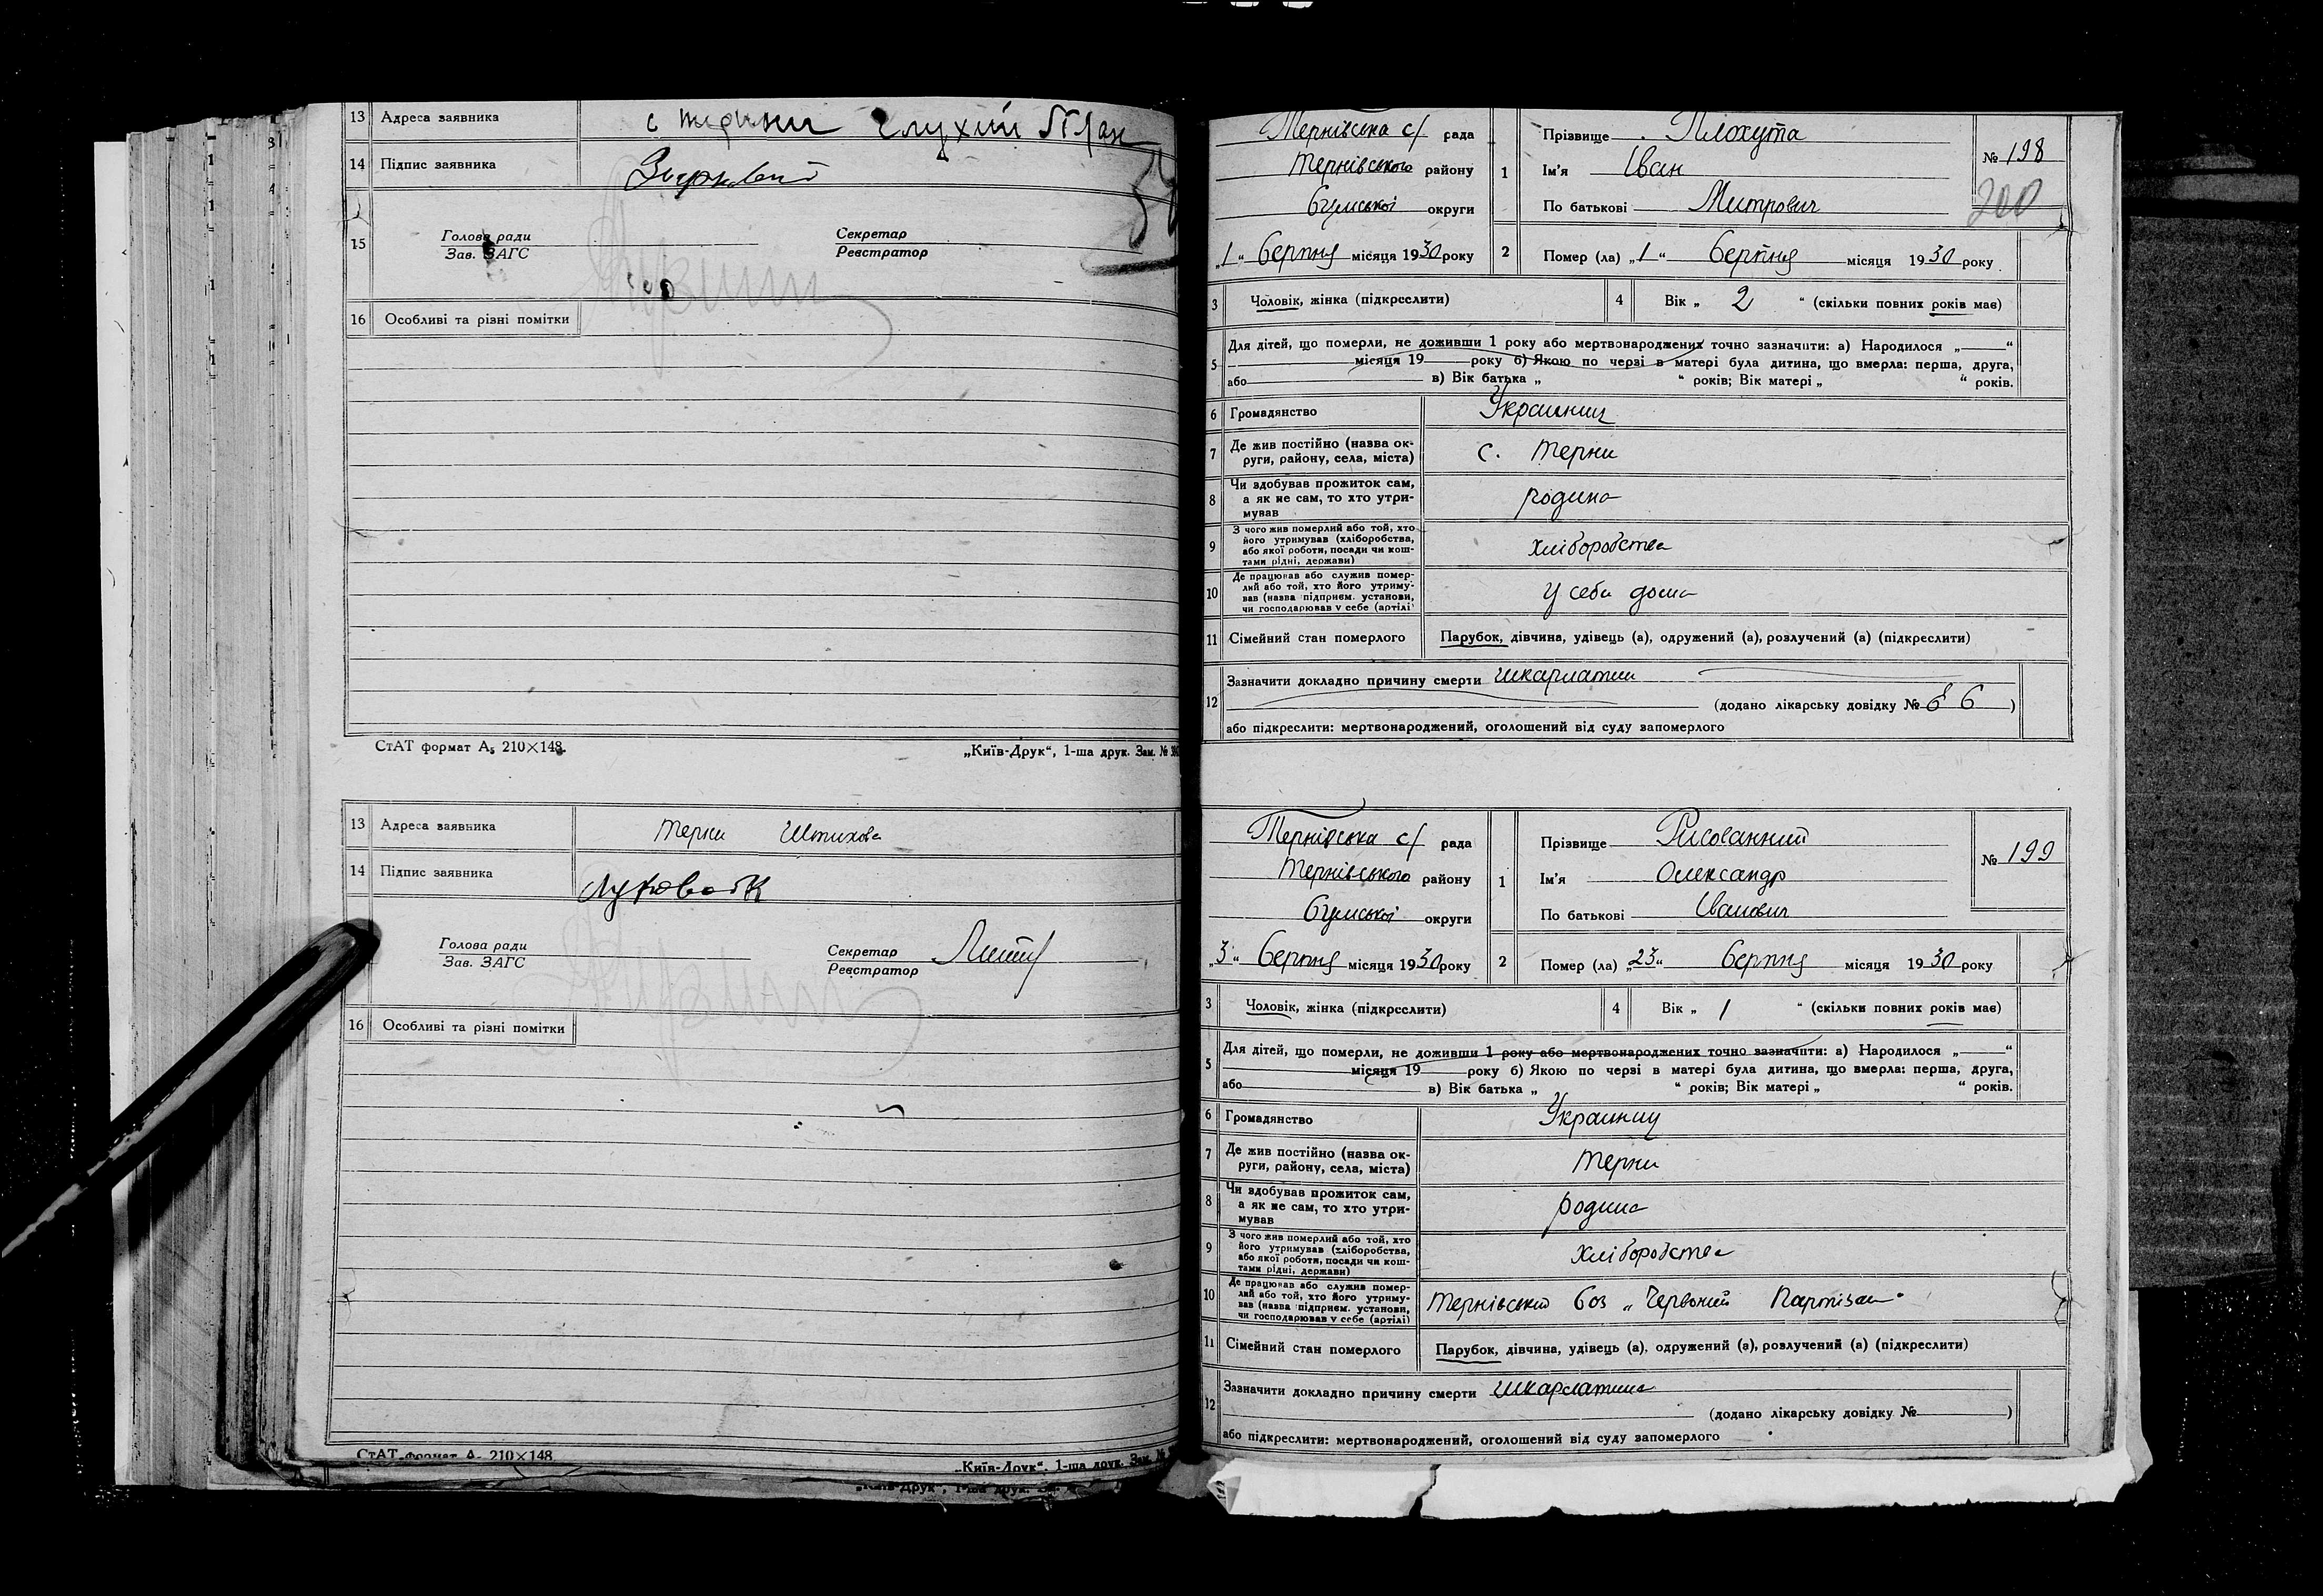 13 Адреса заявника с терни глухий
14 Підпис заявника
15 Голова ради Секретар
Зав. ЗАГС Реєстратор
16 Особливі та різні помітки
СтАТ формат А₅ 210×148. „Київ-Друк“, 1-ша друк. Зам. №
13 Адреса заявника Терни Штихова
14 Підпис заявника
Голова ради Секретар
Зав. ЗАГС Реєстратор
16 Особливі та різні помітки
СтАТ формат А₅ 210×148 „Київ-Друк“, 1-ша друк. Зам. №
„Київ-Друк“, 1-ша друк.
Тернівська с/ рада
Тернівського району
Сумської округи
„1“ Серпня місяця 1930 року
1 Прізвище Плохута
Ім'я Іван
По батькові Митрович
№ 198
200
2 Помер (ла) „1“ Серпня місяця 1930 року
3 Чоловік, жінка (підкреслити) 4 Вік „ 2 “ (скільки повних років має)
5 Для дітей, що померли, не доживши 1 року або мертвонароджених точно зазначити: а) Народилося „ “
місяця 19 року б) Якою по черзі в матері була дитина, що вмерла: перша, друга,
або в) Вік батька „ “ років; Вік матері „ “ років.
6 Громадянство Украинец
7 Де жив постійно (назва ок-
руги, району, села, міста) с. Терни
8 Чи здобував прожиток сам,
а як не сам, то хто утри-
мував родина
9 З чого жив померлий або той, хто
його утримував (хліборобства,
або якої роботи, посади чи кош-
тами рідні, держави) хліборобства
10 Де працював або служив помер-
лий або той, хто його утриму-
вав (назва підприєм. установи,
чи господарював у себе (артілі) у себе дома
11 Сімейний стан померлого Парубок, дівчина, удівець (а), одружений (а), розлучений (а) (підкреслити)
12 Зазначити докладно причину смерти шкарлатин
(додано лікарську довідку № 66)
або підкреслити: мертвонароджений, оголошений від суду запомерлого
Тернівська с/ рада
Тернівського району
Сумської округи
„3“ Серпня місяця 1930 року
1 Прізвище Рисованний
Ім'я Олександр
По батькові Іванович
№ 199
2 Помер (ла) „23“ Серпня місяця 1930 року
3 Чоловік, жінка (підкреслити) 4 Вік „ 1 “ (скільки повних років має)
5 Для дітей, що померли, не доживши 1 року або мертвонароджених точно зазначити: а) Народилося „ “
місяця 19 року б) Якою по черзі в матері була дитина, що вмерла: перша, друга,
або в) Вік батька „ “ років; Вік матері „ “ років.
6 Громадянство Украинец
7 Де жив постійно (назва ок-
руги, району, села, міста) Терни
8 Чи здобував прожиток сам,
а як не сам, то хто утри-
мував родина
9 З чого жив померлий або той, хто
його утримував (хліборобства,
або якої роботи, посади чи кош-
тами рідні, держави) хліборобства
10 Де працював або служив помер-
лий або той, хто його утриму-
вав (назва підприєм. установи,
чи господарював у себе (артілі) Тернівський Соз „Червоний Партізан“
11 Сімейний стан померлого Парубок, дівчина, удівець (а), одружений (а), розлучений (а) (підкреслити)
12 Зазначити докладно причину смерти шкарлатина
(додано лікарську довідку № )
або підкреслити: мертвонароджений, оголошений від суду запомерлого